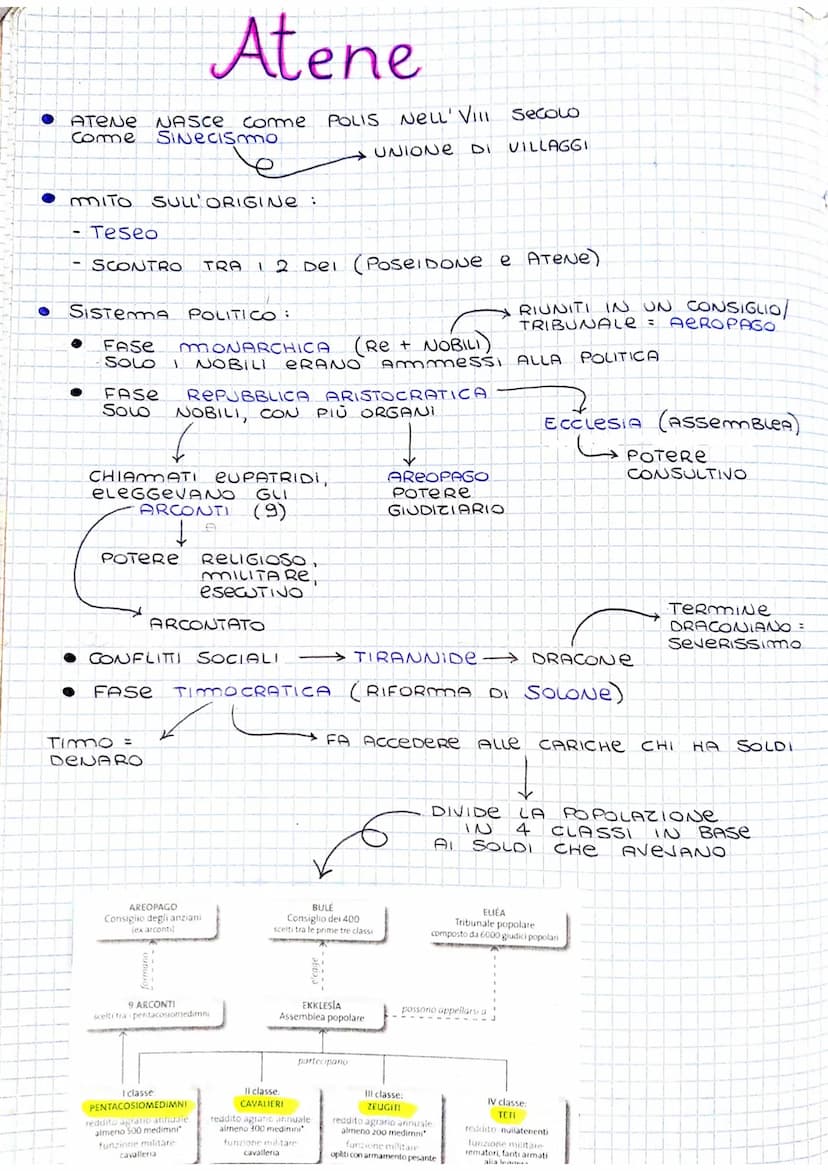 Atene
• ATENE NASCE COME POLIS NELL'VIII SECOLO
COME SINECISMO
→ UNIONE DI VILLAGGI
• MITO SULL'ORIGINE :
- TESEO
- SCONTRO TRA I 2 DEI (POSEIDONE E ATENE)
• SISTEMA POLITICO :
→ RIUNITI IN UN CONSIGLIO/
TRIBUNALE = AEROPAGO
• FASE MONARCHICA (RE + NOBILI)
SOLO I NOBILI ERANO AMMMESSI ALLA POLITICA
• FASE REPUBBLICA ARISTOCRATICA
SOLO NOBILI, CON PIÙ ORGANI
ECCLESIA (ASSEMBLEA)
→ POTERE
CONSULTIVO
CHIAMATI EUPATRIDI,
ELEGGEVANO GLI
ARCONTI (9)
AREOPAGO
POTERE
GIUDIZIARIO
POTERE RELIGIOSO,
MILITARE,
ESECUTIVO
ARCONTATO
TERMINE
DRACONIANO =
SEVERISSIMO
• CONFLITI SOCIALI → TIRANNIDE → DRACONE
• FASE TIMOCRATICA (RIFORMA DI SOLONE)
TIMO =
DENARO
→ FA ACCEDERE ALLE CARICHE CHI HA SOLDI
DIVIDE LA POPOLAZIONE
IN 4 CLASSI IN BASE
AI SOLDI CHE AVEVANO
AREOPAGO
Consiglio degli anziani
(ex arconti)
BULÈ
Consiglio dei 400
scelti tra le prime tre classi
ELIÈA
Tribunale popolare
composto da 6000 giudici popolari
formano
elegge
9 ARCONTI
scelti tra i pentacosiomedimni
EKKLESÌA
Assemblea popolare
possono appellarsi a
partecipano
I classe:
PENTACOSIOMEDIMNI
reddito agrario annuale
almeno 500 medimni*
funzione militare
cavalleria
II classe:
CAVALIERI
reddito agrario annuale
almeno 300 medimni*
funzione militare
cavalleria
III classe:
ZEUGITI
reddito agrario annuale
almeno 200 medimni*
funzione militare
opliti con armamento pesante
IV classe:
TETI
reddito nullatenenti
funzione militare
rematori, fanti armati